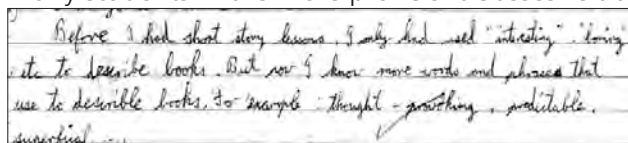 Before I had short story lessons, I only had used "interesting", "boring"
etc to describe books. But now I know more words and phrases that
use to desinible books. For example : thought - provoking, predictable,
superficial ...